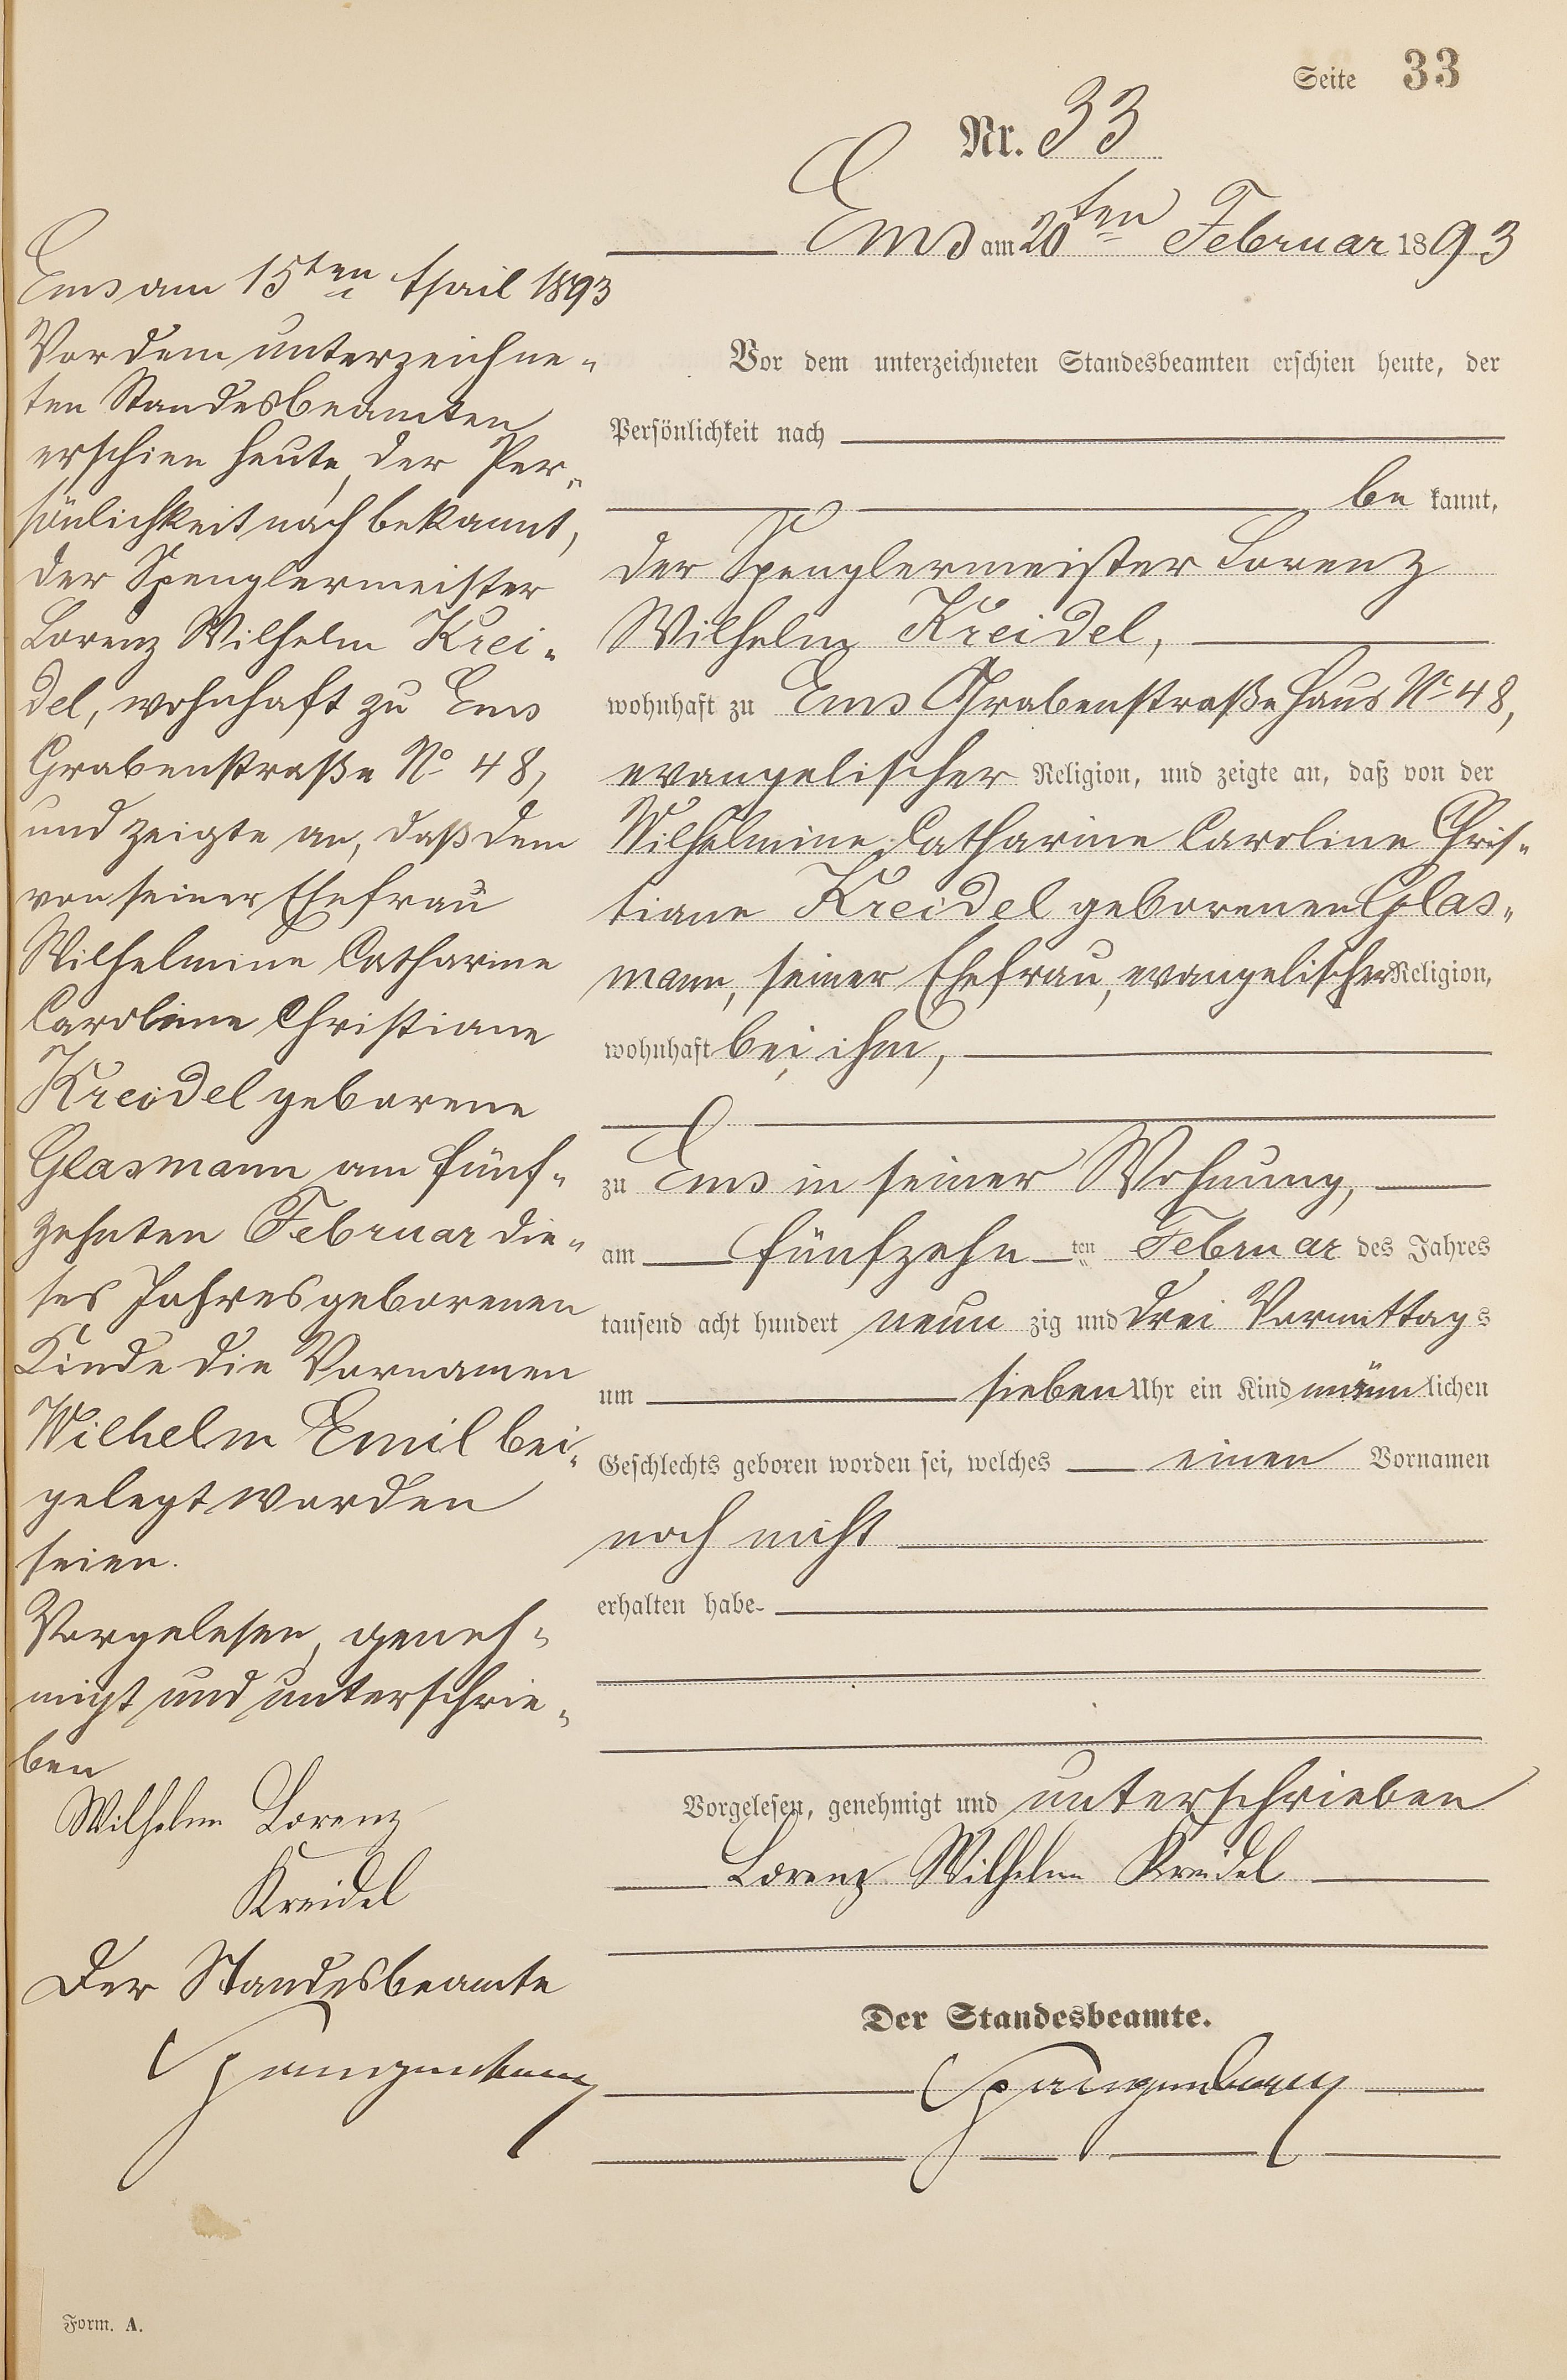 Seite 33
Nr. 33
Ems am 20ten Februar 1893
Vor dem unterzeichneten Standesbeamten erschien heute, der
Persönlichkeit nach
be kannt,
der Spenglermeister Lorenz
Wilhelm Kreidel,
wohnhaft zu Ems Grabenstraße Haus No 48,
evangelischer Religion, und zeigte an, daß von der
Wilhelmine Catharine Caroline Chris-
tiane Kreidel geborenen Glas-
mann, seiner Ehefrau, evangelischer Religion,
wohnhaft bei ihm,
zu Ems in seiner Wohnung,
am fünfzehn ten Februar des Jahres
tausend acht hundert neun zig und drei Vormittags
um sieben Uhr ein Kind männlichen
Geschlechts geboren worden sei, welches einen Vornamen
noch nicht
erhalten habe
Vorgelesen, genehmigt und unterschrieben
Lorenz Wilhelm Kreidel
Der Standesbeamte.
Spangenberg
Ems am 15ten April 1893
Vor dem unterzeichne-
ten Standesbeamten
erschien heute, der Per-
sönlichkeit nach bekannt,
der Spenglermeister
Lorenz Wilhelm Krei-
del, wohnhaft zu Ems
Grabenstraße No 48,
und zeigte an, daß dem
von seiner Ehefrau
Wilhelmine Catharine
Caroline Christiane
Kreidel geborene
Glasmann am fünf-
zehnten Februar die-
ses Jahres geborenen
Kinde die Vornamen
Wilhelm Emil bei-
gelegt worden
seien.
Vorgelesen, geneh-
migt und unterschrie-
ben
Wilhelm Lorenz
Kreidel
Der Standesbeamte
Spangenberg
Form. A.